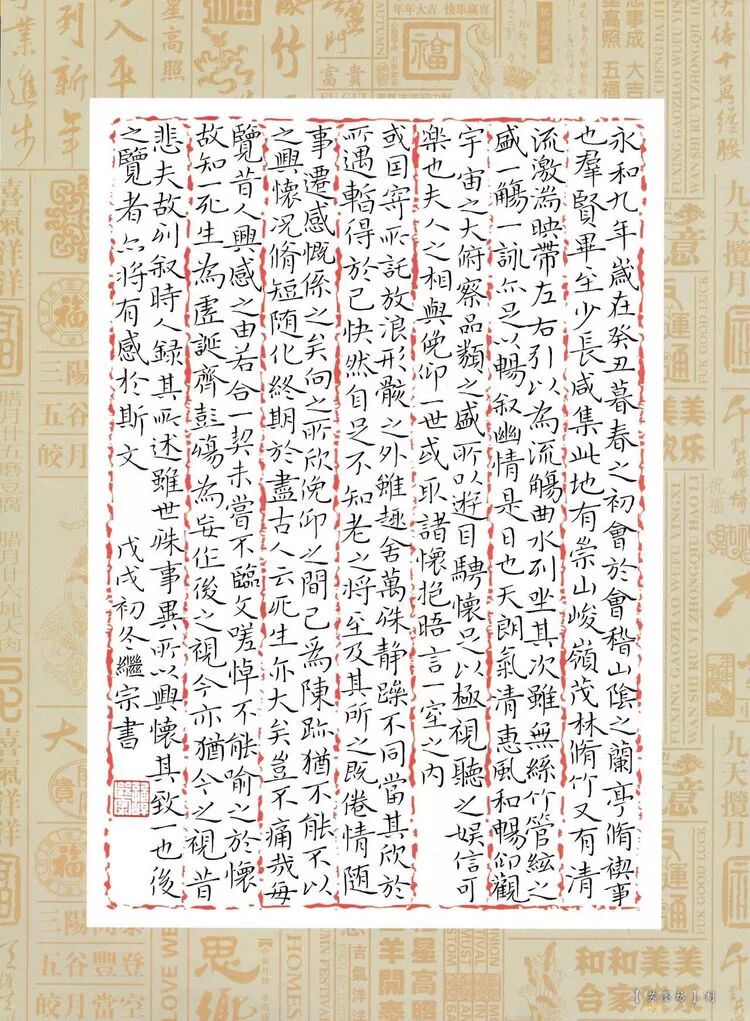 永和九年歲在癸丑暮春之初會於會稽山陰之蘭亭脩禊事
也羣賢畢至少長咸集此地有崇山峻嶺茂林脩竹又有清
流激湍映帶左右引以為流觴曲水列坐其次雖無絲竹管絃之
盛一觴一詠亦足以暢叙幽情是日也天朗氣清惠風和暢仰觀
宇宙之大府察品類之盛所以遊目騁懷足以極視聽之娛信可
樂也夫人之相與俛仰一世或取諸懷抱晤言一室之内
或因寄所託放浪形骸之外雖趣舍萬殊静躁不同當其欣於
所遇暫得於己快然自足不知老之將至及其所之既倦情隨
事遷感慨係之矣向之所欣俛仰之間已為陳跡猶不能不以
之興懷况脩短随化終期於盡古人云死生亦大矣豈不痛哉每
覽昔人興感之由若合一契未嘗不臨文嗟悼不能喻之於懷
故知一死生為虛誕齊彭殤為妄作後之視今亦猶今之視昔
悲夫故列叙時人録其所述雖世殊事異所以興懷其致一也後
之覽者亦將有感於斯文
戊戌初冬繼宗書
年年大吉 快乐赢喜
福
星高照
富貴
九天攬月
三陽
五谷
皎月
喜氣洋洋
三陽開泰
五谷豐登
皎月當空
星高照
羊開泰
和和美美
合家欢乐